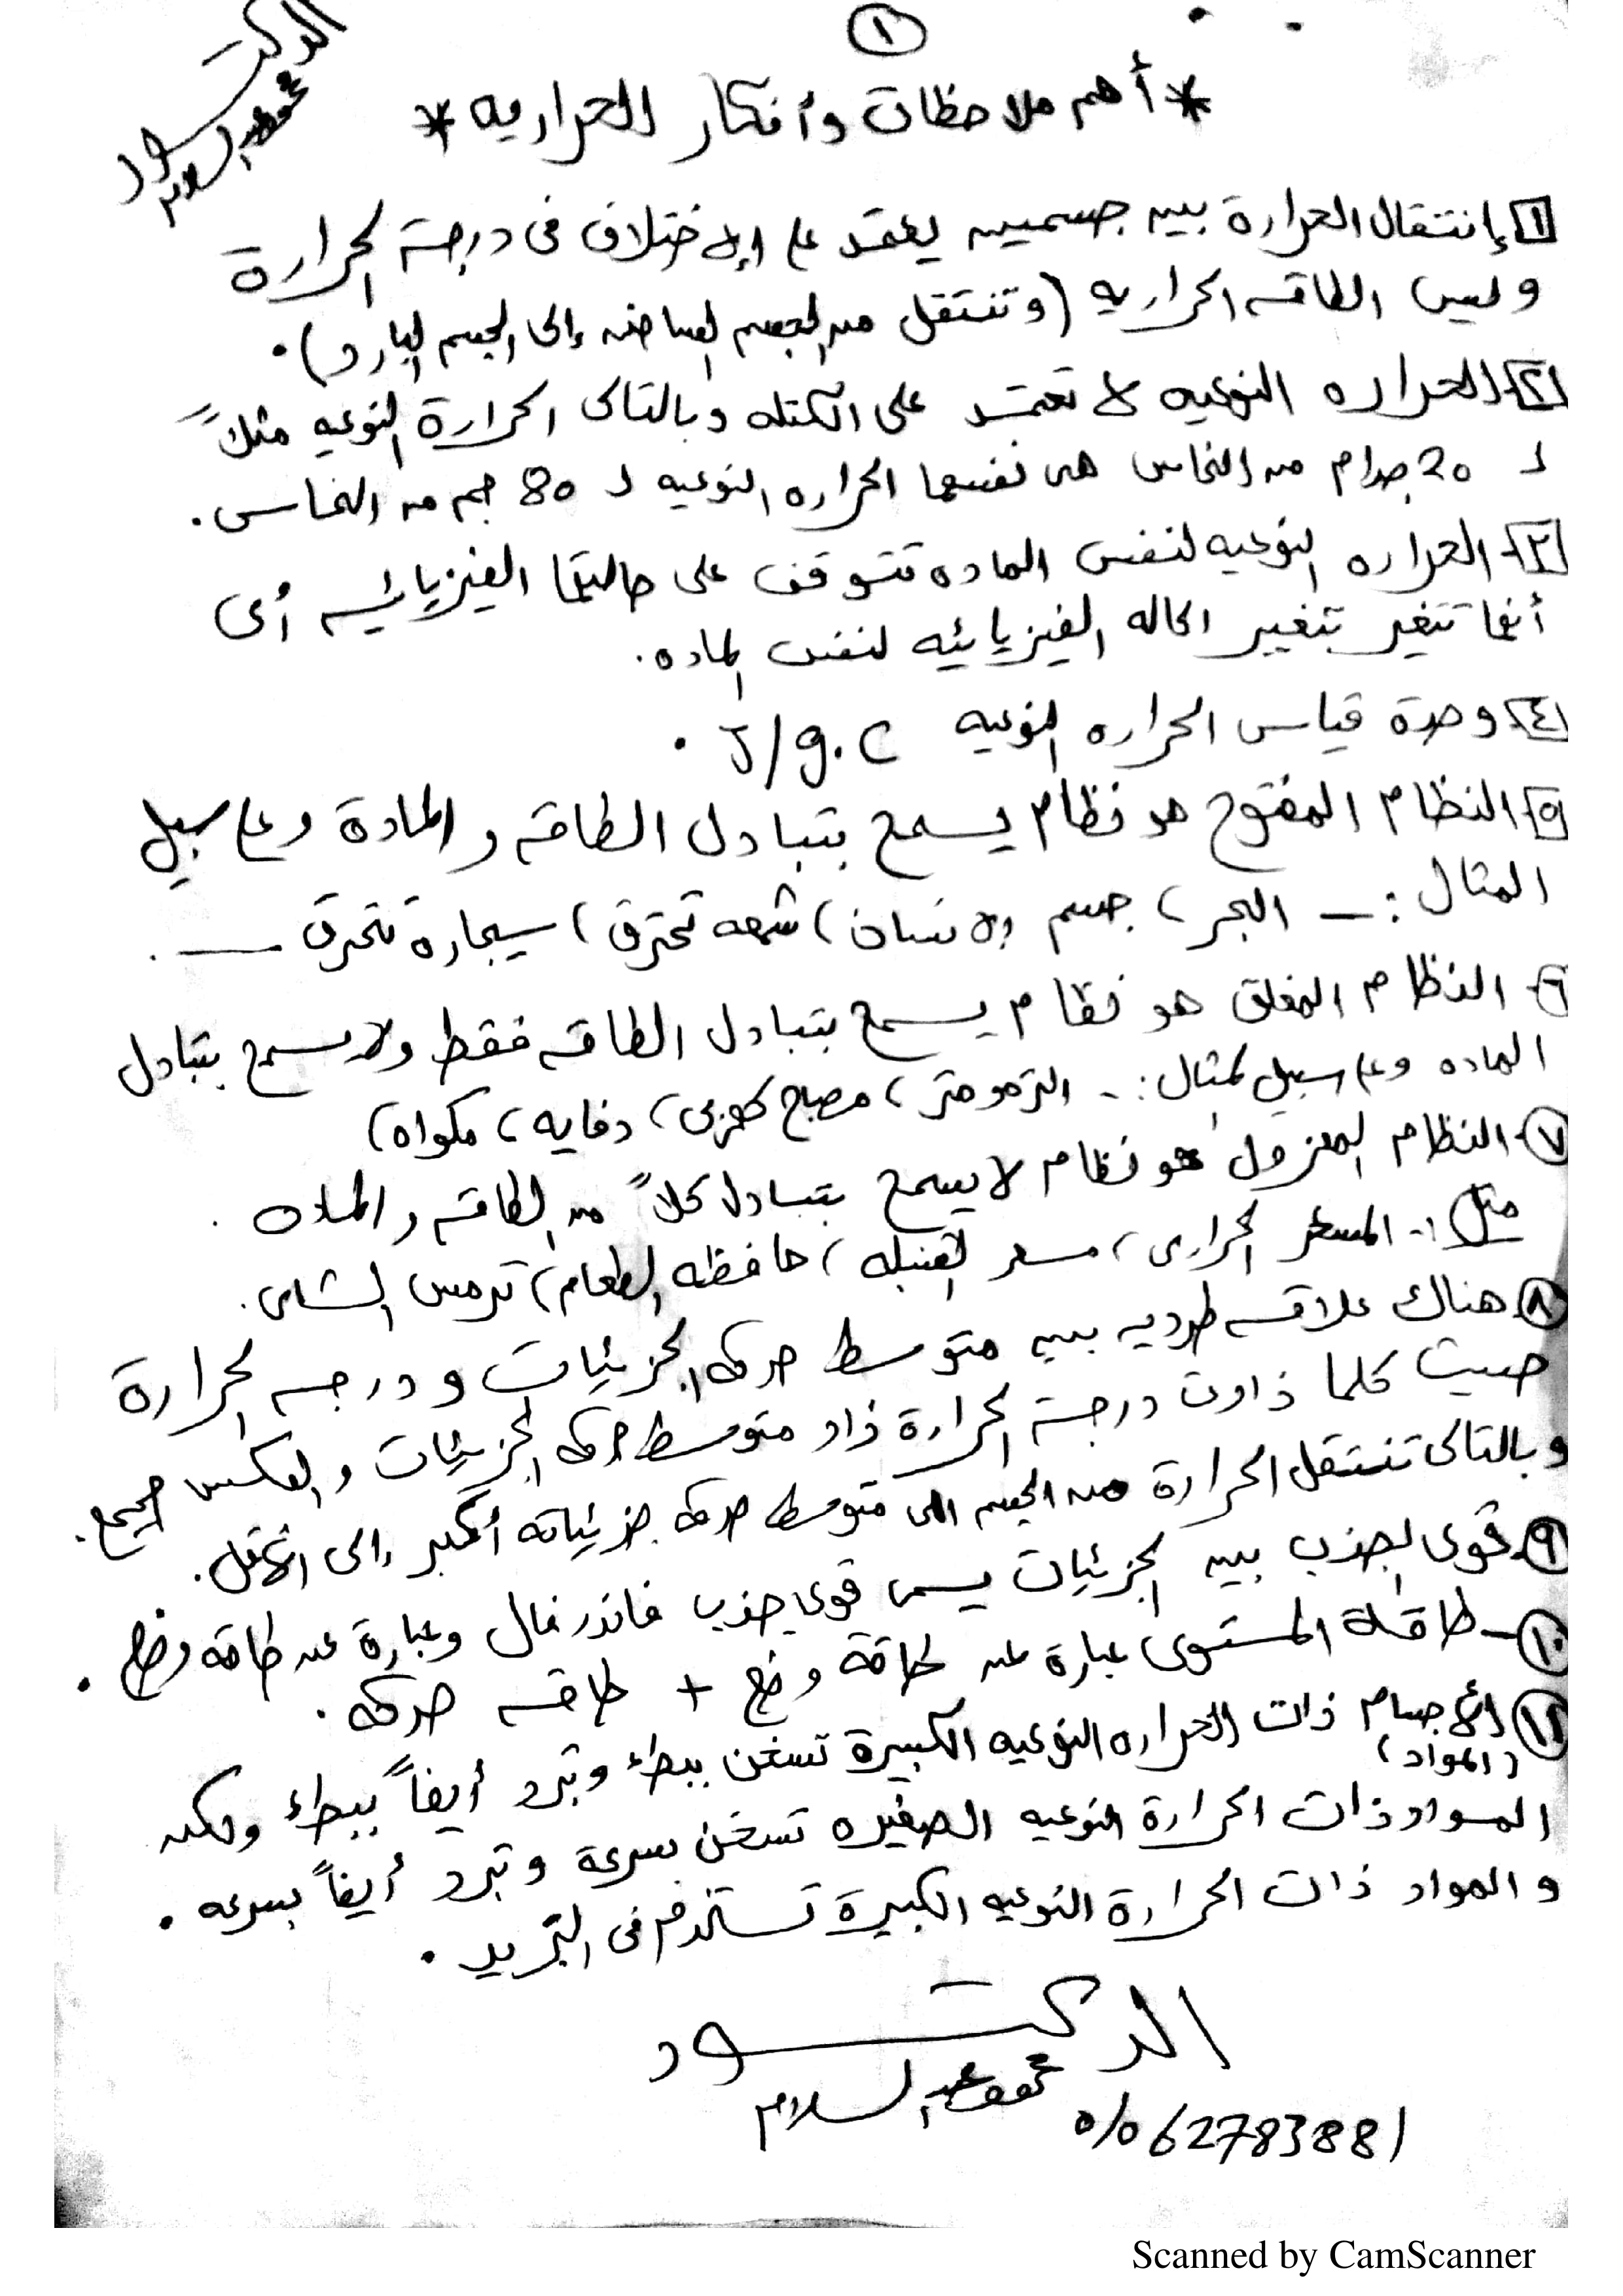 ١
الدكتور
محمود عبد السلام
* أهم ملاحظات وأفكار الحراريه *
١ إنتقال الحرارة بين جسمين يعتمد على الإختلاف فى درجة الحرارة
وليس الطاقه الحراريه (وتنتقل من الجسم الساخن إلى الجسم البارد).
٢ الحراره النوعيه لا تعتمد على الكتله وبالتالى الحرارة النوعيه مثلاً
لـ 20 جرام من النحاس هى نفسها الحراره النوعيه لـ 80 جم من النحاس.
٣ الحراره النوعيه لنفس الماده تتوقف على حالتها الفيزيائيه أى
أنها تتغير بتغير الحاله الفيزيائيه لنفس الماده.
٤ وحدة قياس الحراره النوعيه J/g.C .
٥ النظام المفتوح هو نظام يسمح بتبادل الطاقه والمادة وعلى سبيل
المثال :- البحر، جسم الإنسان، شمعه تحترق، سيجارة تحترق ـــ .
٦- النظام المغلق هو نظام يسمح بتبادل الطاقه فقط ولا يسمح بتبادل
الماده وعلى سبيل المثال :- الترمومتر، مصباح كهربى، دفايه، مكواه)
٧- النظام المعزول هو نظام لا يسمح بتبادل كلاً من الطاقه والماده .
مثل :- المسعر الحرارى، مسعر القنبله، حافظه الطعام، ترمس الشاى.
٨- هناك علاقه طرديه بين متوسط حركه الجزيئات ودرجه الحرارة
حيث كلما ذادت درجة الحرارة ذاد متوسط حركه الجزيئات والعكس صحيح.
وبالتالى تنتقل الحرارة من الجسم الى متوسط حركه جزيئاته أكبر إلى الأقل.
٩- قوى الجذب بين الجزيئات يسمى قوى جذب فاندرفال وعبارة عن طاقه وضع .
١٠- طاقة المستوى عبارة عن طاقة وضع + طاقه حركه .
١١ الأجسام ذات الحراره النوعيه الكبيرة تسخن ببطء وتبرد أيضاً ببطء ولكن
(المواد)
المواد ذات الحرارة النوعيه الصغيره تسخن بسرعة وتبرد أيضاً بسرعه .
والمواد ذات الحرارة النوعيه الكبيرة تستخدم فى التبريد .
الدكتور
محمود عبد السلام
01062783881
Scanned by CamScanner